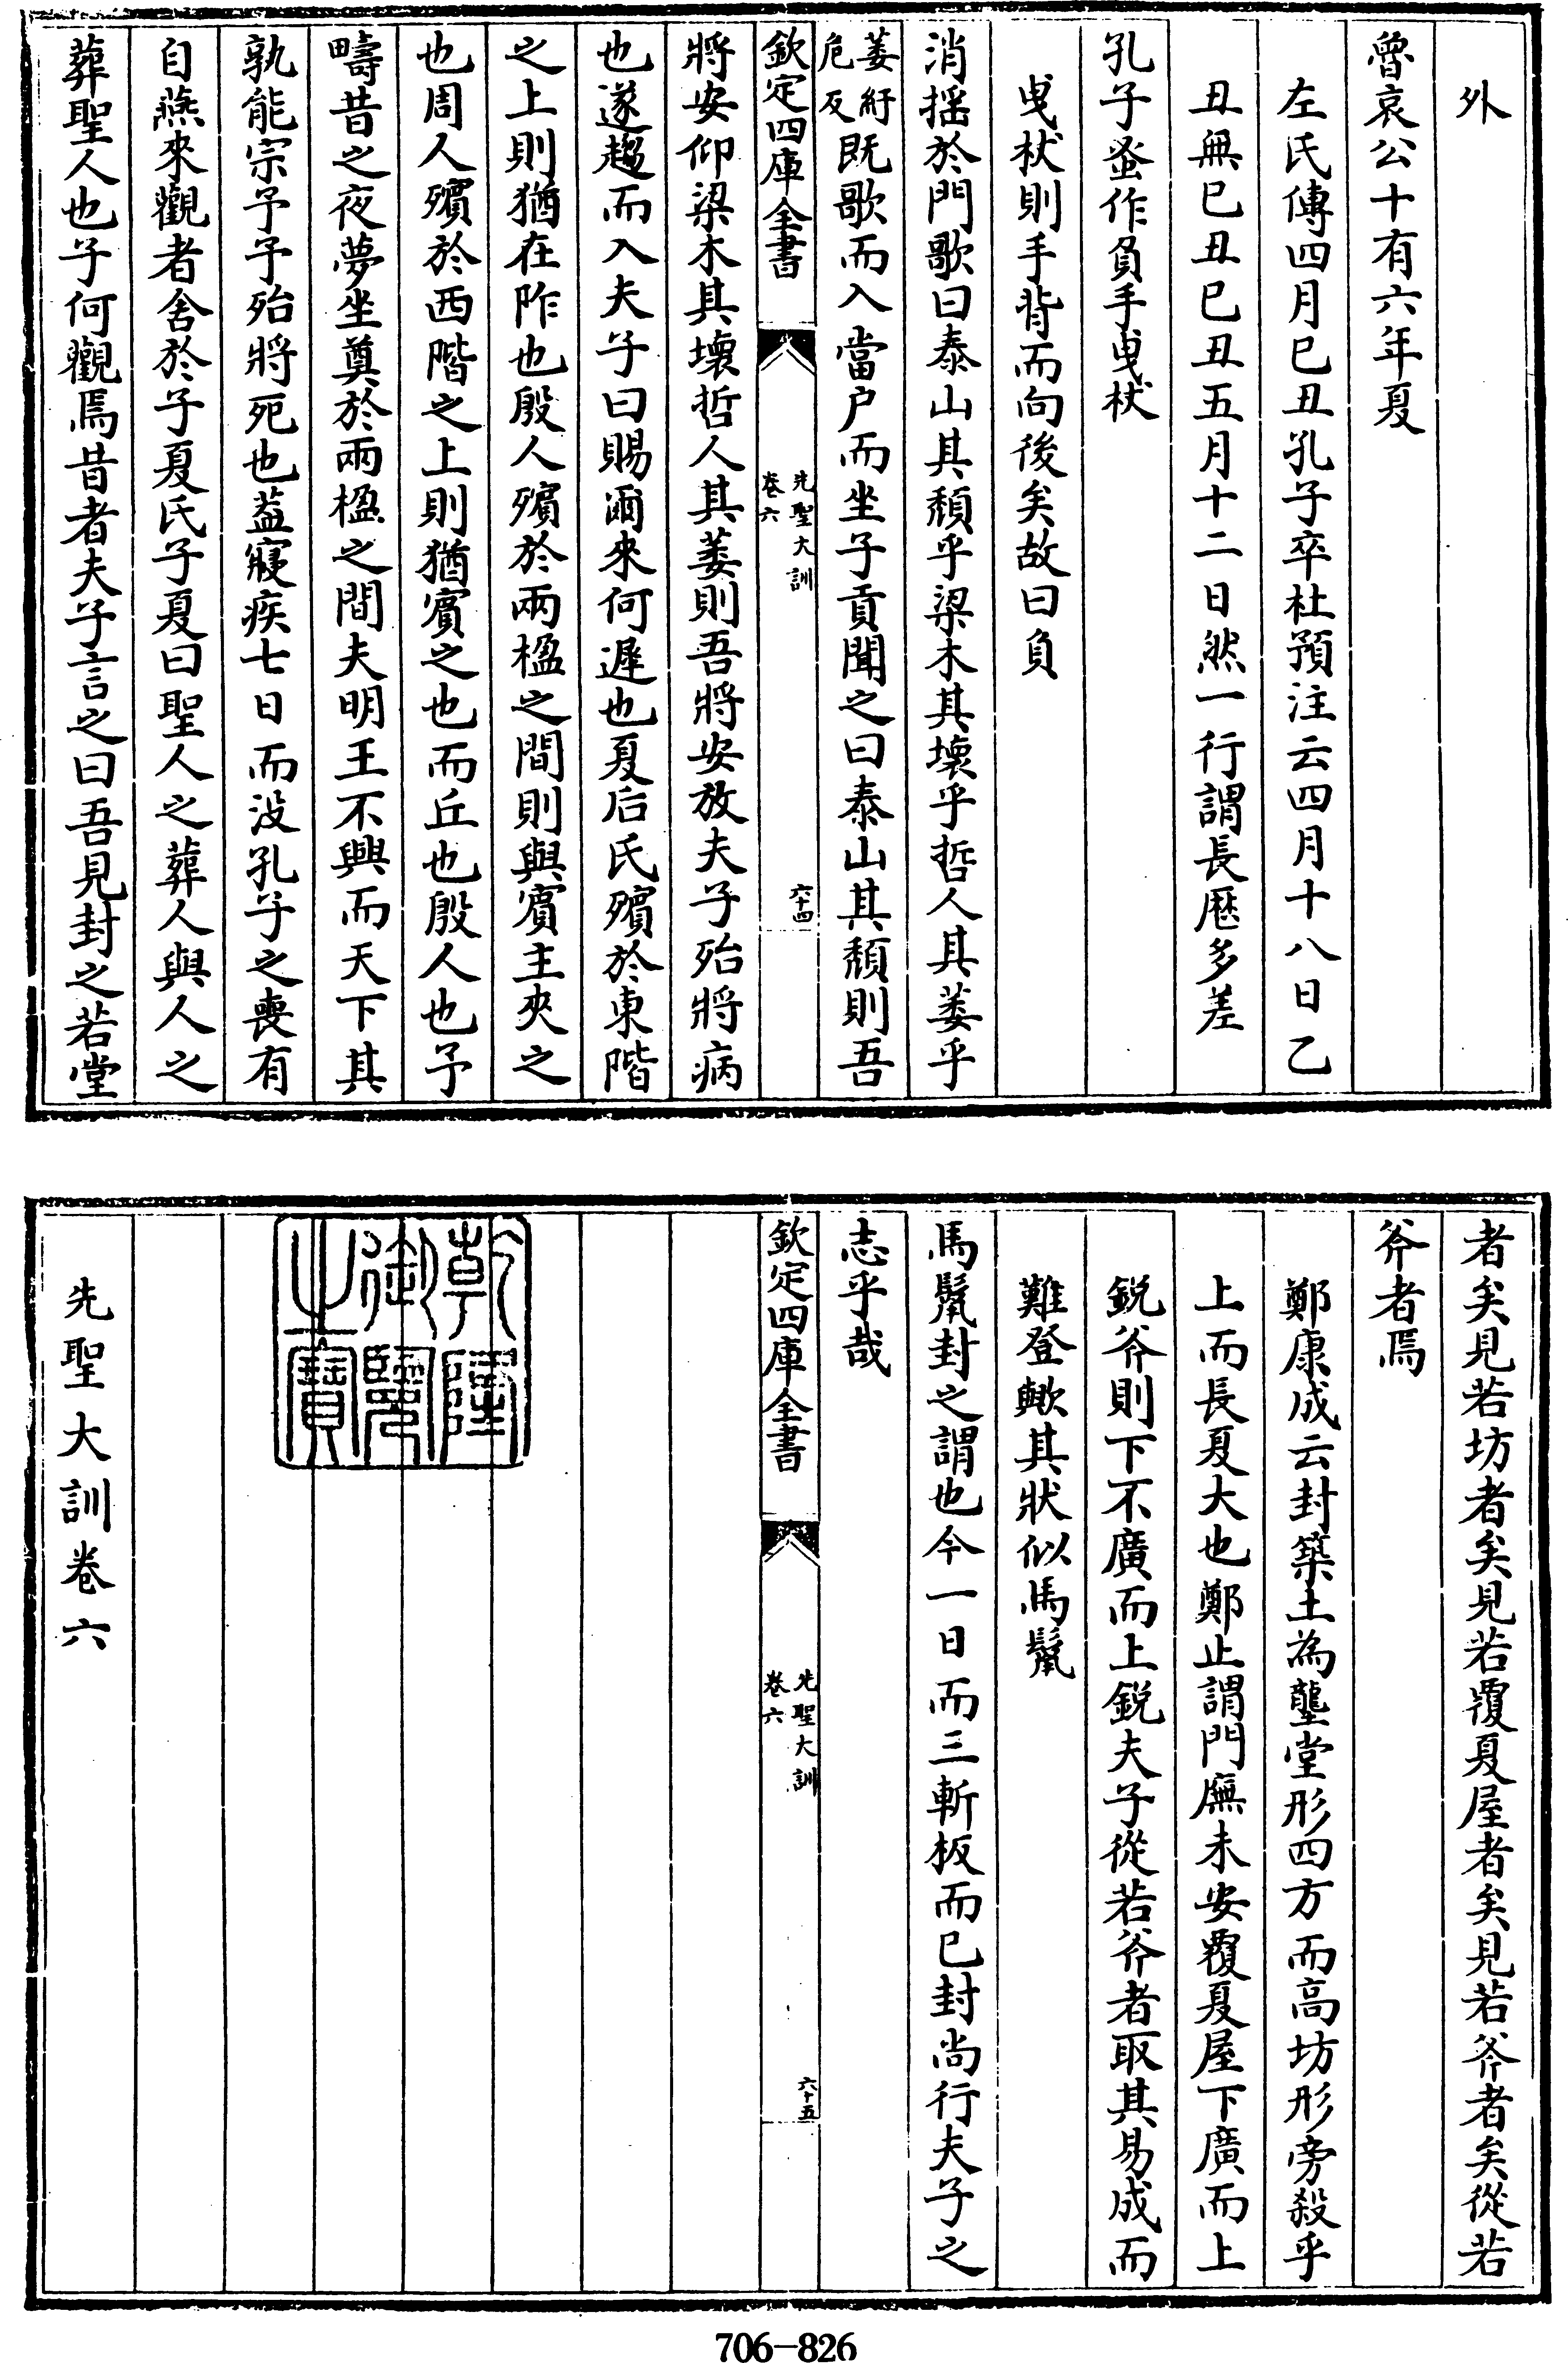 外
魯哀公十有六年夏
左氏傳四月己丑孔子卒杜預注云四月十八日乙
丑無己丑己丑五月十二日然一行謂長厯多差
孔子蚤作負手曳杖
曳杖則手背而向後矣故曰負
消摇於門歌曰泰山其頽乎梁木其壊乎哲人其萎乎
萎紆危反既歌而入當户而坐子貢聞之曰泰山其頽則吾
欽定四庫全書 先聖大訓 卷六 六十四
將安仰梁木其壊哲人其萎則吾將安放夫子殆將病
也遂趨而入夫子曰賜爾來何遲也夏后氏殯於東階
之上則猶在阼也殷人殯於兩楹之間則與賓主夾之
也周人殯於西階之上則猶賓之也而丘也殷人也予
疇昔之夜夢坐奠於兩楹之間夫明王不興而天下其
孰能宗予予殆將死也葢寢疾七日而没孔子之喪有
自燕來觀者舍於子夏氏子夏曰聖人之葬人與人之
葬聖人也子何觀焉昔者夫子言之曰吾見封之若堂
者矣見若坊者矣見若覆夏屋者矣見若斧者矣從若
斧者焉
鄭康成云封築土為壟堂形四方而高坊形旁殺乎
上而長夏大也鄭止謂門廡未安覆夏屋下廣而上
鋭斧則下不廣而上鋭夫子從若斧者取其易成而
難登歟其狀似馬鬛
馬鬛封之謂也今一日而三斬板而已封尚行夫子之
志乎哉
欽定四庫全書 先聖大訓 卷六 六十五
乾隆御覽之寶
先聖大訓卷六
706-826